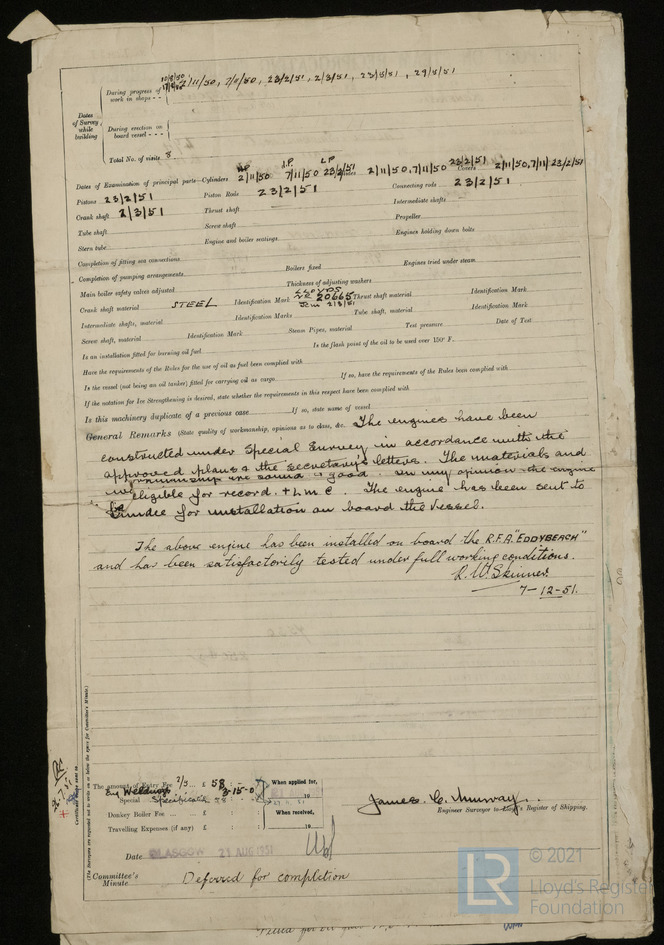 Dates of Survey while building
During progress of work in shops - - 2/11/50, 7/11/50, 23/2/51, 2/3/51, 23/5/51, 29/5/51
During erection on board vessel - - -
Total No. of visits 8
Dates of Examination of principal parts—Cylinders H.P. 2/11/50 I.P. 7/11/50 L.P. 23/2/51 2/11/50, 7/11/50 23/2/51 Covers 2/11/50, 7/11/ 23/2/51
Pistons 23/2/51 Piston Rods 23/2/51 Connecting rods 23/2/51
Crank shaft 2/3/51 Thrust shaft Intermediate shafts
Tube shaft Screw shaft Propeller
Stern tube Engine and boiler seatings Engines holding down bolts
Completion of fitting sea connections
Completion of pumping arrangements Boilers fixed Engines tried under steam
Main boiler safety valves adjusted Thickness of adjusting washers
Crank shaft material STEEL Identification Mark LLOYDS NR 20665 JCM 2/3/51 Thrust shaft material Identification Mark
Intermediate shafts, material Identification Marks Tube shaft, material Identification Mark
Screw shaft, material Identification Mark Steam Pipes, material Test pressure Date of Test
Is an installation fitted for burning oil fuel Is the flash point of the oil to be used over 150° F.
Have the requirements of the Rules for the use of oil as fuel been complied with
Is the vessel (not being an oil tanker) fitted for carrying oil as cargo If so, have the requirements of the Rules been complied with
If the notation for Ice Strengthening is desired, state whether the requirements in this respect have been complied with
Is this machinery duplicate of a previous case If so, state name of vessel
General Remarks (State quality of workmanship, opinions as to class, &c. The engines have been
constructed under Special Survey in accordance with the
approved plans & the secretary's letters. The materials and
workmanship are sound & good. In my opinion the engine
eligible for record. + L M C. The engine has been sent to
Dundee for installation on board the vessel.
The above engine has been installed on board the R.F.A. "EDDYBEACH"
and has been satisfactorily tested under full working conditions.
R. W. Skinner
7-12-51.
(The Surveyors are requested not to write on or below the space for Committee's Minute.)
The amount of Entry Fee 2/5 £ 58 : - : When applied for,
Special £ 19
Donkey Boiler Fee £ : : When received,
Travelling Expenses (if any) £ : : 19
James C. Murray.
Engineer Surveyor to Lloyd's Register of Shipping.
Date GLASGOW 21 AUG 1951
Committee's Minute Deferred for completion
© 2021
Lloyd's Register
Foundation
LR